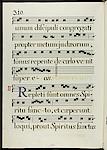 310.
unum discipuli congregati
propter metum judæorum,
sonus repente de cælo venit
super e- os.
Repleti sunt omnes Spi-
ritu sancto, et cœperunt
loqui, prout Spiritus sanctus